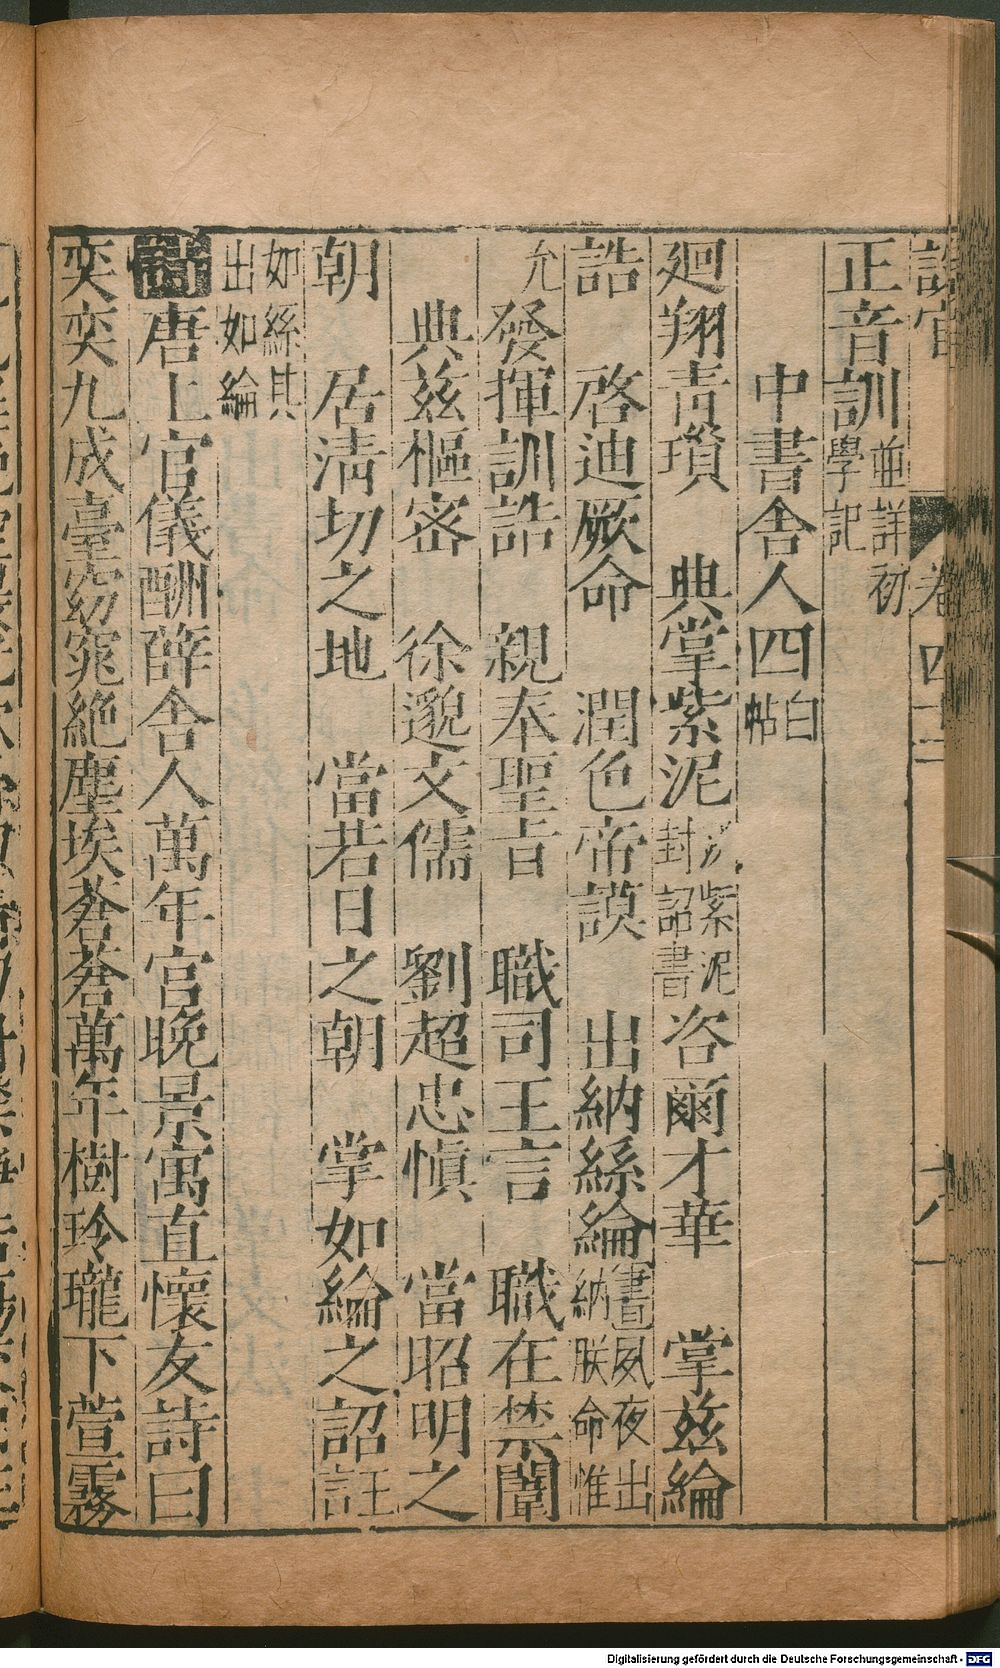 設官 卷四十二 十八
正音訓並詳初學記
中書舍人四白帖
廻翔青瑣 典掌紫泥以紫泥封詔書 咨爾才華 掌茲綸
誥 啓迪厥命 潤色帝謨 出納絲綸書夙夜出納朕命惟
允 發揮訓誥 親奉聖旨 職司王言 職在禁闈
典茲樞密 徐邈文儒 劉超忠愼 當昭明之
朝 居淸切之地 當若日之朝 掌如綸之詔註王
如絲其出如綸
詩 唐上官儀酬薛舍人萬年宮晚景寓直懷友詩曰
奕奕九成臺窈窕絶塵埃蒼蒼萬年樹玲瓏下萱霧
Digitalisierung gefördert durch die Deutsche Forschungsgemeinschaft - DFG